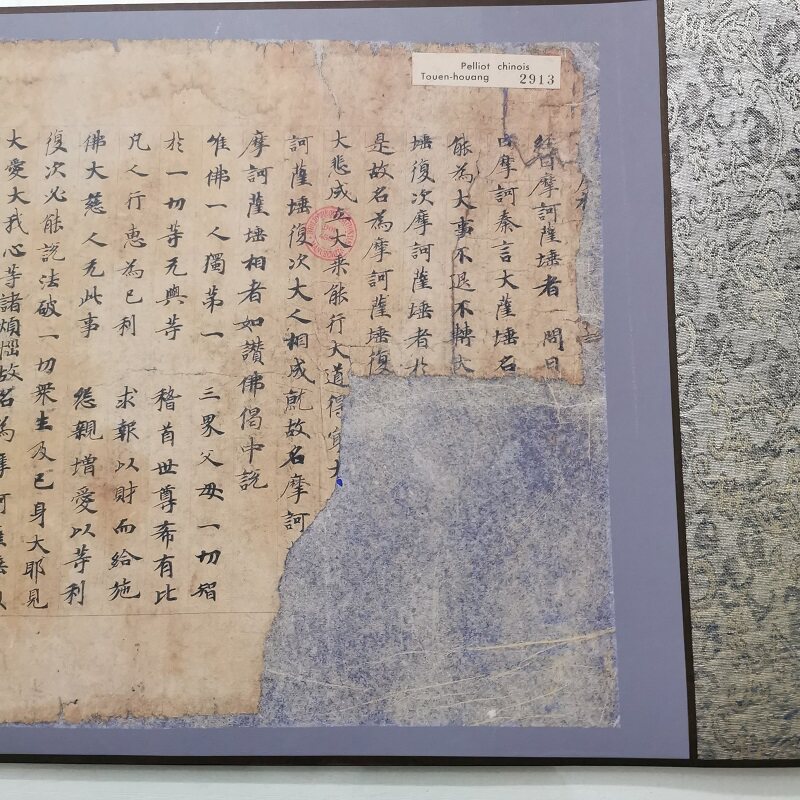 Pelliot chinois
Touen-houang 2913
經曰摩訶薩埵者 問曰
曰摩訶秦言大薩埵名
能為大事不退不轉大
埵復次摩訶薩埵者於
是故名為摩訶薩埵復
大悲成立大乘能行大道得
訶薩埵復次大人相成就故名摩訶
摩訶薩埵相者如讚佛偈中說
唯佛一人獨第一 三界父母一切智
於一切等无與等 稽首世尊希有比
凡人行惠為己利 求報以財而給施
佛大慈人无此事 怨親增愛以等利
復次必能說法破一切眾生及己身大耶見
大愛大我心等諸煩惱故名為摩訶薩埵